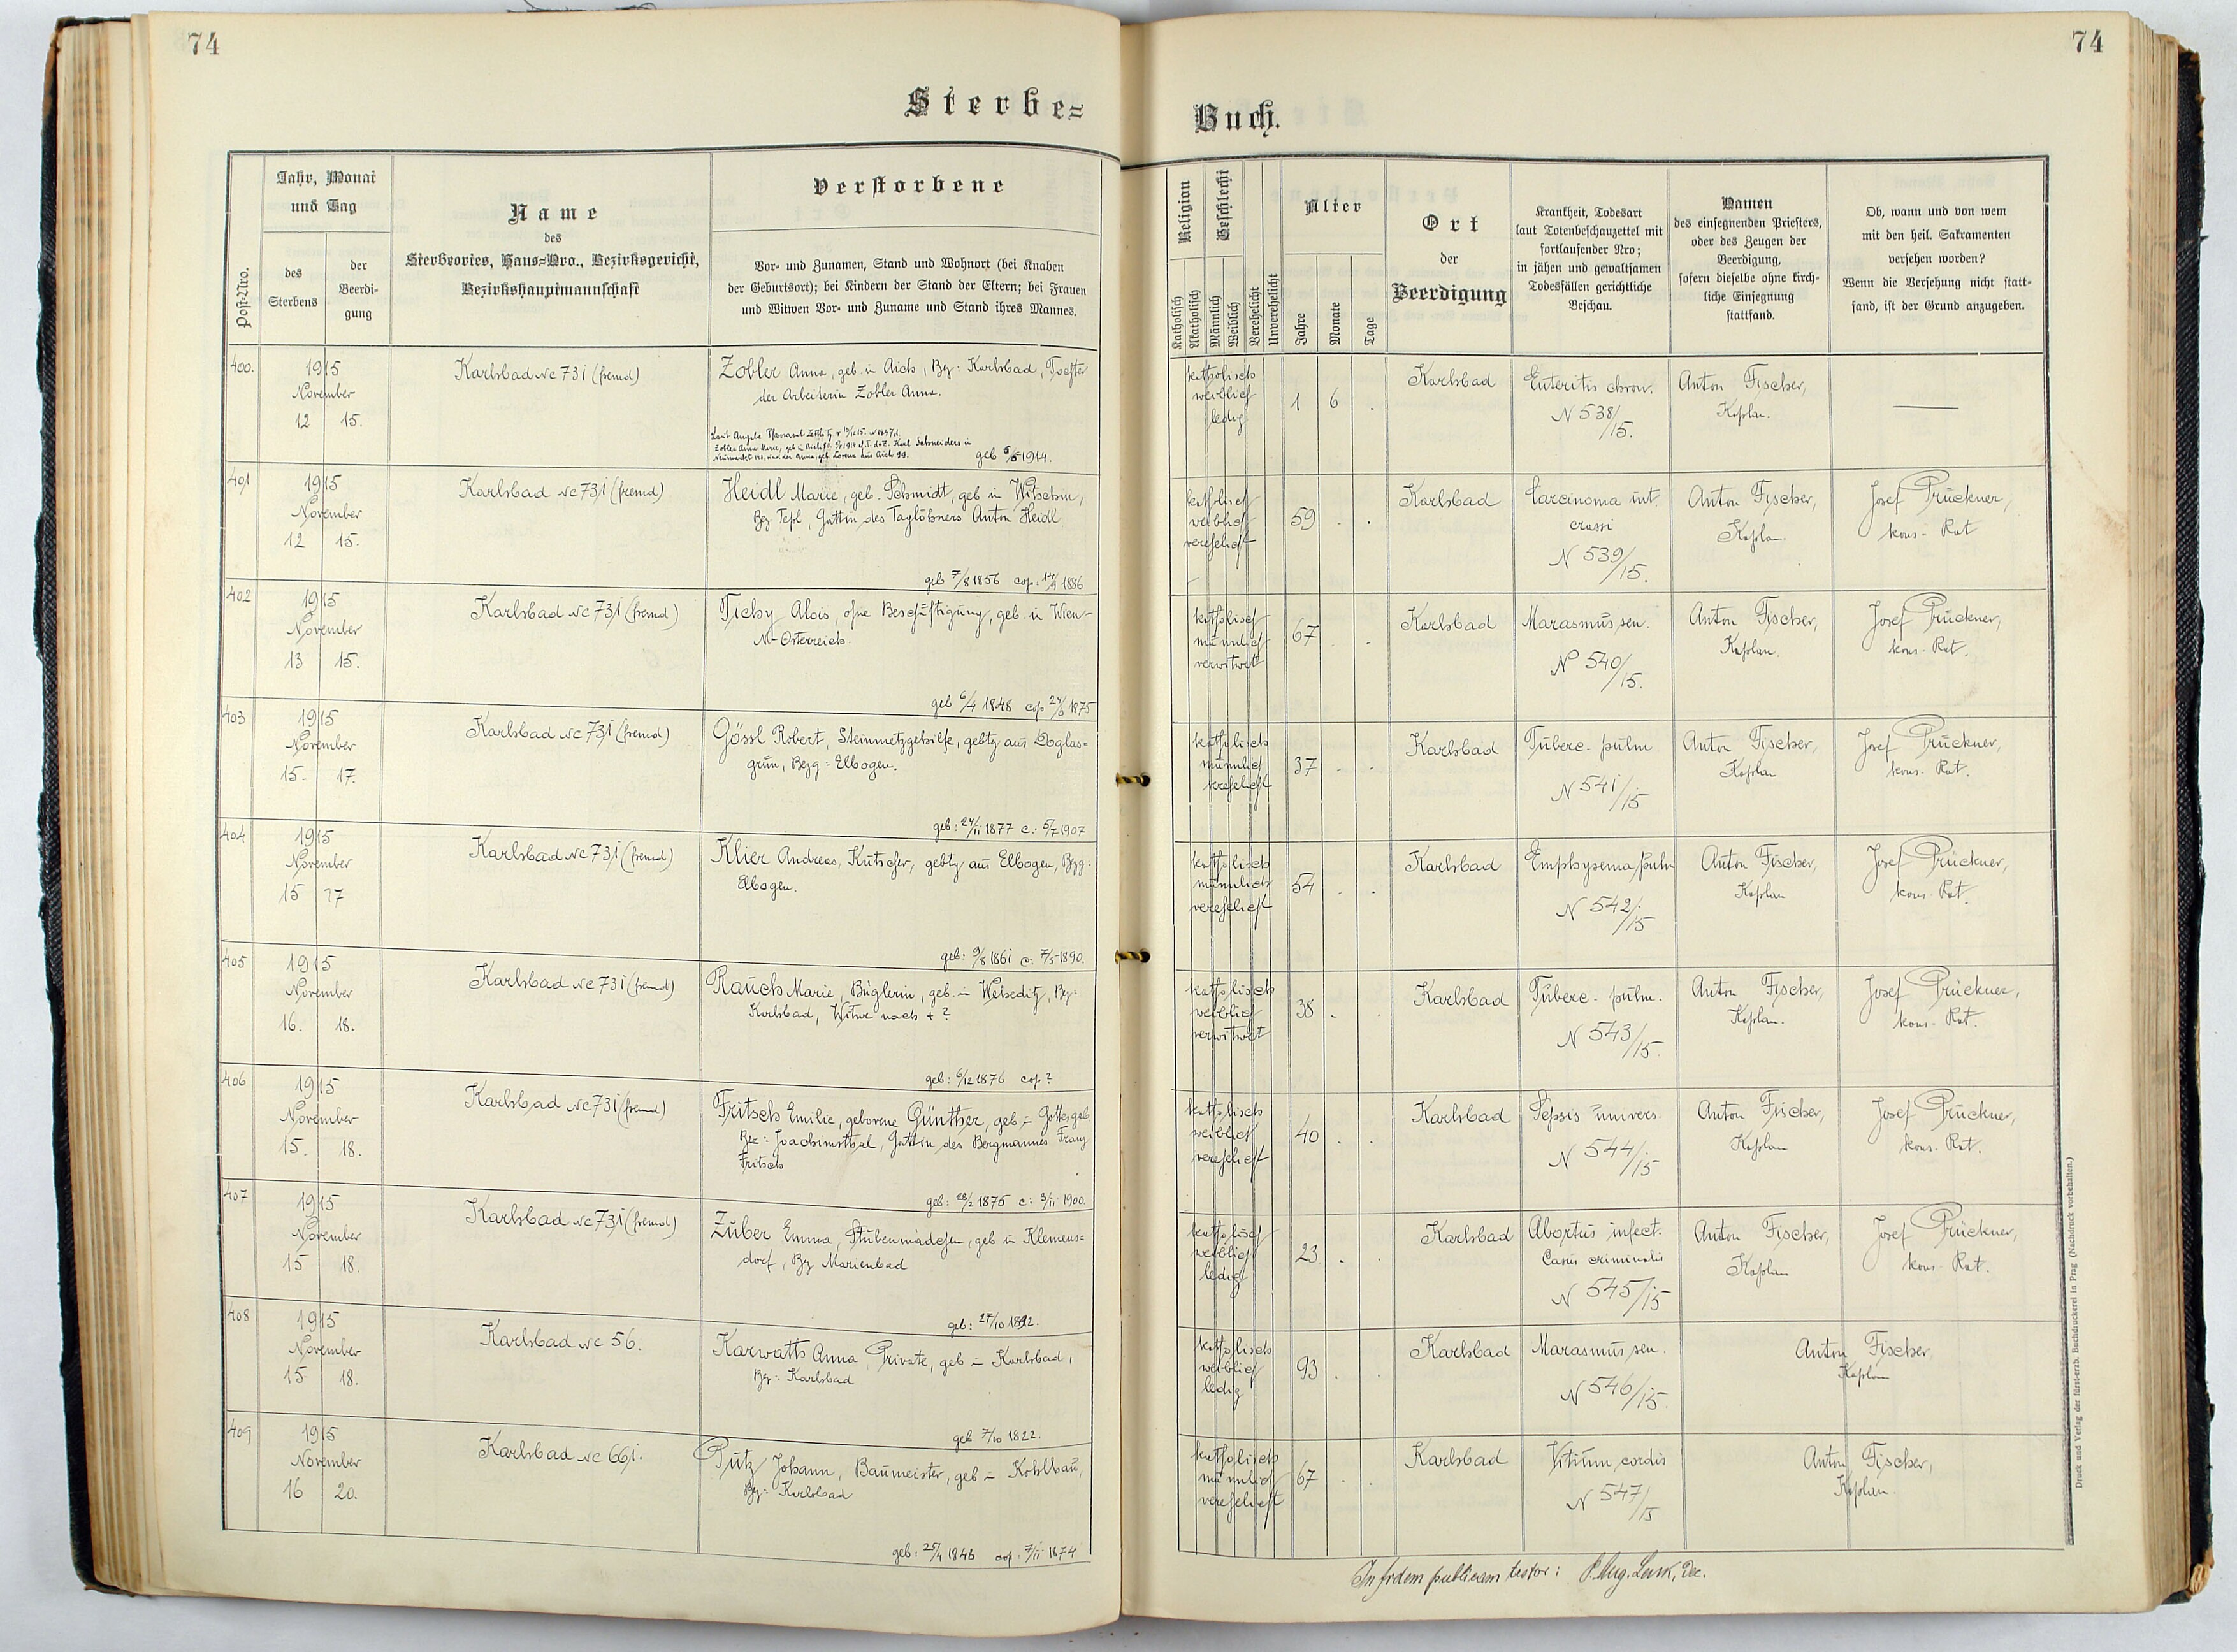 74
74
Sterbe=
Buch.
Post-Nro.
Jahr, Monat
und Tag
des
Sterbens
der
Beerdi-
gung
Name
des
Sterbeortes, Haus=Nro., Bezirksgericht,
Bezirkshauptmannschaft
Verstorbene
Vor- und Zunamen, Stand und Wohnort (bei Knaben
der Geburtsort); bei Kindern der Stand der Eltern; bei Frauen
und Witwen Vor- und Zuname und Stand ihres Mannes.
Religion
Katholisch
Akatholisch
Geschlecht
Männlich
Weiblich
Verehelicht
Unverehelicht
Alter
Jahre
Monate
Tage
Ort
der
Beerdigung
Krankheit, Todesart
laut Totenbeschauzettel mit
fortlaufender Nro;
in jähen und gewaltsamen
Todesfällen gerichtliche
Beschau.
Namen
des einsegnenden Priesters,
oder des Zeugen der
Beerdigung,
sofern dieselbe ohne kirch-
liche Einsegnung
stattfand.
Ob, wann und von wem
mit den heil. Sakramenten
versehen worden?
Wenn die Versehung nicht statt-
fand, ist der Grund anzugeben.
400.
1915
November
12 15.
Karlsbad Nc 731 (fremd)
Zobler Anna, geb. in Aich, Bez: Karlsbad, Tochter
der Arbeiterin Zobler Anna.
geb 5/5 1914.
katholisch
weiblich
ledig
1 6 .
Karlsbad
Enteritis chron.
N 538/15.
Anton Fischer,
Kaplan.
401
1915
November
12 15.
Karlsbad Nc 731 (fremd)
Heidl Marie, geb. Schmidt, geb in Witschin,
Bez Tepl, Gattin des Taglöhners Anton Heidl
geb 7/8 1856 cop: 14/9 1886
katholisch
weiblich
verehelicht
59 . .
Karlsbad
Carcinoma int.
crassi
N 539/15.
Anton Fischer,
Kaplan.
Josef Prückner,
kons. Rat
402
1915
November
13 15.
Karlsbad Nc 731 (fremd)
Tichy Alois, ohne Beschäftigung, geb. in Wien-
N-Österreich.
geb 6/4 1848 cop 24/6 1875
katholisch
männlich
verwitwet
67 . .
Karlsbad
Marasmus sen.
N 540/15.
Anton Fischer,
Kaplan.
Josef Prückner,
kons. Rat.
403
1915
November
15. 17.
Karlsbad Nc 731 (fremd)
Gössl Robert, Steinmetzgehilfe, gebtg aus Doglas=
grün, Bezg: Elbogen.
geb: 24/11 1877 c: 5/7 1907
katholisch
männlich
verehelicht
37 . .
Karlsbad
Tuberc. pulm
N 541/15
Anton Fischer,
Kaplan
Josef Prückner,
kons. Rat.
404
1915
November
15 17
Karlsbad Nc 731 (fremd)
Klier Andreas, Kutscher, gebtg aus Elbogen, Bzg.
Elbogen.
geb: 9/8 1861 c: 7/5 1890.
katholisch
männlich
verehelicht
54 . .
Karlsbad
Emphysema pulm
N 542/15
Anton Fischer,
Kaplan
Josef Prückner,
kons. Rat.
405
1915
November
16. 18.
Karlsbad Nc 731 (fremd)
Rauch Marie, Büglerin, geb. in Weheditz, Bz:
Karlsbad, Witwe nach + ?
geb: 6/12 1876 cop?
katholisch
weiblich
verwitwet
38 . .
Karlsbad
Tuberc. pulm.
N 543/15.
Anton Fischer,
Kaplan.
Josef Prückner,
kons. Rat.
406
1915
November
15. 18.
Karlsbad Nc 731 (fremd)
Fritsch Emilie, geborene Günther, geb in Gottesgab
Bez: Joachimsthal, Gattin des Bergmannes Franz
Fritsch
geb: 28/2 1875 c: 3/11 1900.
katholisch
weiblich
verehelicht
40 . .
Karlsbad
Sepsis univers.
N 544/15
Anton Fischer,
Kaplan
Josef Prückner,
kons. Rat.
407
1915
November
15 18.
Karlsbad Nc 731 (fremd)
Zuber Emma, Stubenmädchen, geb in Klemens=
dorf, Bz Marienbad
geb: 27/10 1892.
katholisch
weiblich
ledig
23 . .
Karlsbad
Abortus infect.
Casus criminalis
N 545/15
Anton Fischer,
Kaplan
Josef Prückner,
kons. Rat.
408
1915
November
15 18.
Karlsbad Nc 56.
Karwath Anna, Private, geb in Karlsbad,
Bez: Karlsbad
geb 7/10 1822.
katholisch
weiblich
ledig
93 . .
Karlsbad
Marasmus sen.
N 546/15.
Anton Fischer,
Kaplan
409
1915
November
16 20.
Karlsbad Nc 661.
Putz Johann, Baumeister, geb in Kohlhau,
Bez: Karlsbad
geb: 25/4 1848 cop: 7/11 1874
katholisch
männlich
verehelicht
67 . .
Karlsbad
Vitium cordis
N 547/15
Anton Fischer,
Kaplan.
In fidem publicam testor: P. Aug. Lenk, Dec.
Druck und Verlag der fürst-erzb. Buchdruckerei in Prag (Nachdruck vorbehalten.)